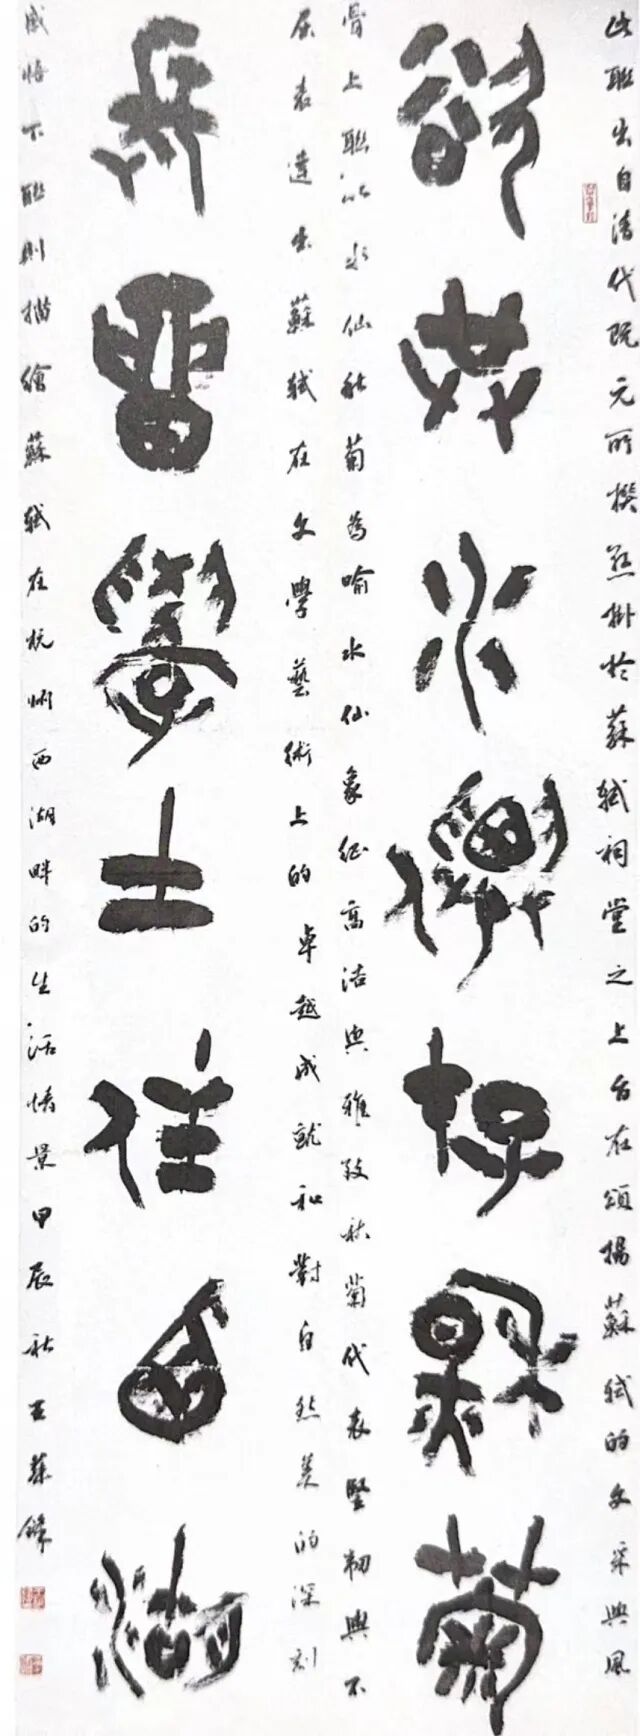 此聯出自清代阮元所撰懸掛於蘇軾祠堂之上旨在頌揚蘇軾的文采與風
欲共水僊荐秋菊
骨上聯以水仙秋菊為喻水仙象征高洁與雅致秋菊代表堅韌與不
屈表達出蘇軾在文學藝術上的卓越成就和對自然美的深刻
長留學士住西湖
感悟下聯則描繪蘇軾在杭州西湖畔的生活情景甲辰秋王